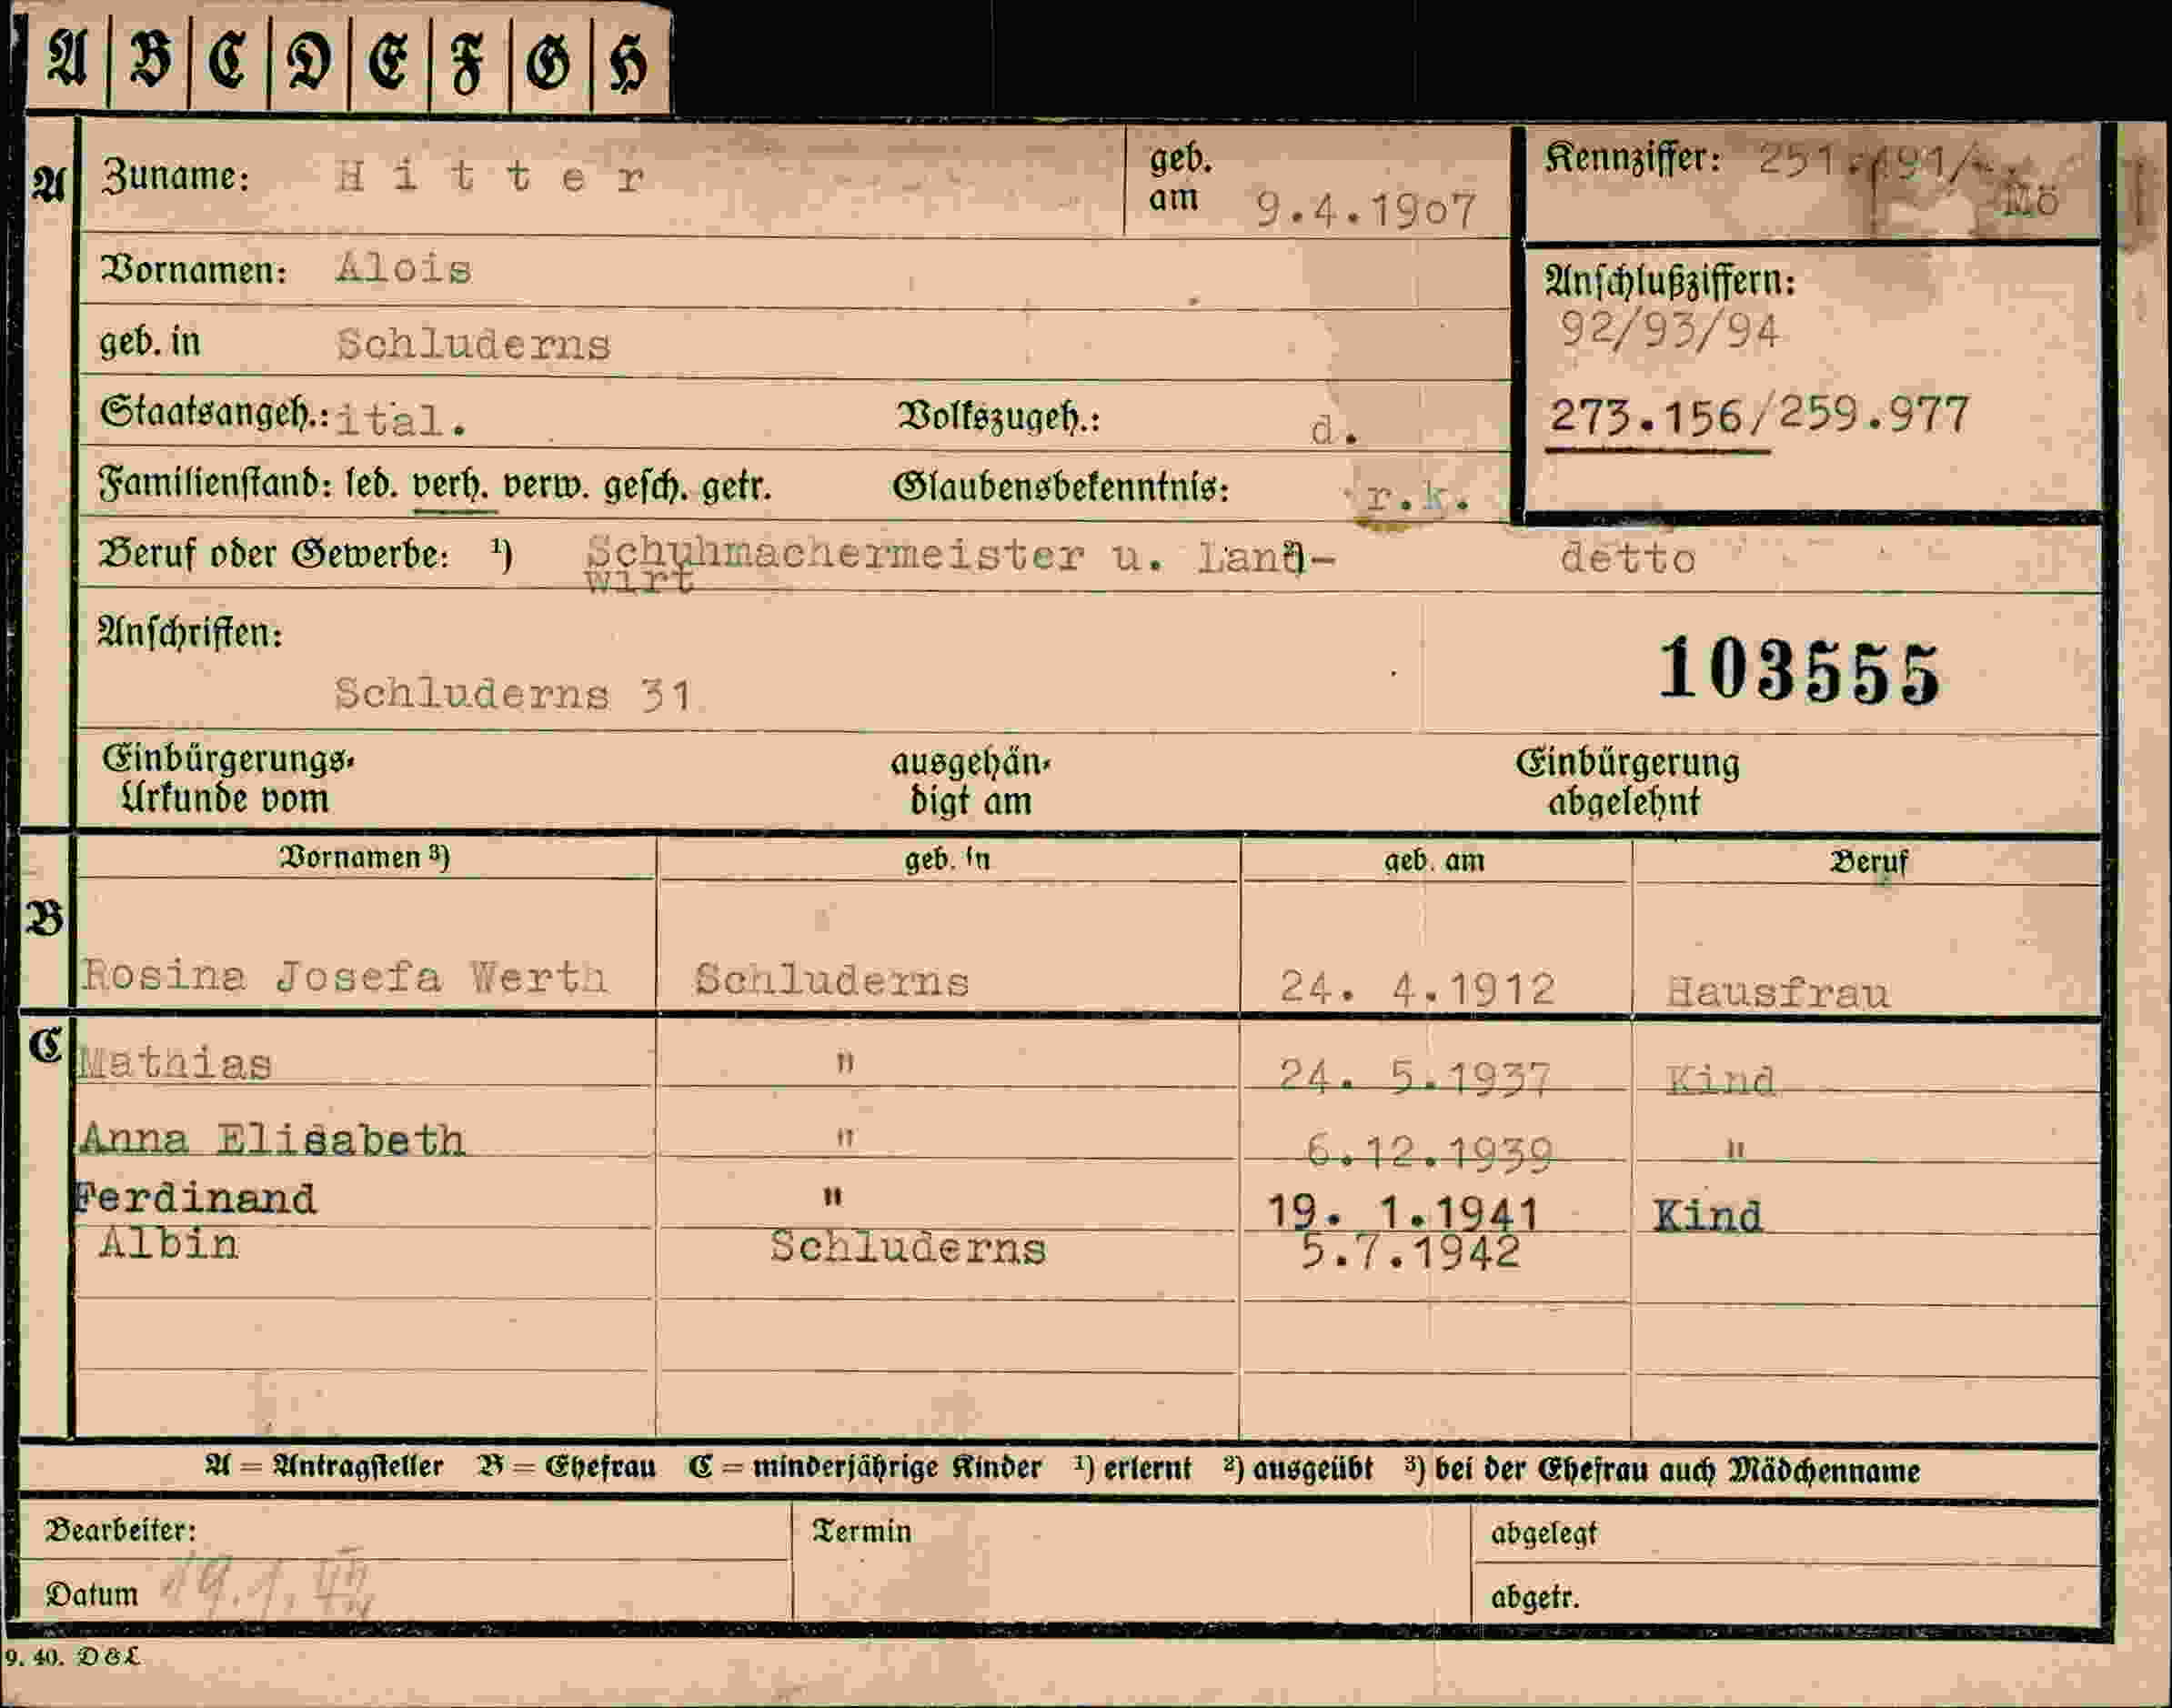 A B C D E F G H
A Zuname: Hitter geb. am 9.4.1907 Kennziffer: 251.491/
Mö
Vornamen: Alois
Anschlußziffern:
92/93/94
geb. in Schluderns
Staatsangeh.: ital. Volkszugeh.: d.
273.156/259.977
Familienstand: led. verh. verw. gesch. getr. Glaubensbekenntnis: r.k.
Beruf oder Gewerbe: ¹) Schuhmachermeister u. Land- ²) detto
wirt
Anschriften:
103555
Schluderns 31
Einbürgerungs- ausgehän- Einbürgerung
Urkunde vom digt am abgelehnt
Vornamen ³) geb. in geb. am Beruf
B
Rosina Josefa Werth Schluderns 24. 4.1912 Hausfrau
C
Mathias " 24. 5.1937 Kind
Anna Elisabeth " 6.12.1939 "
Ferdinand " 19. 1.1941 Kind
Albin Schluderns 5.7.1942
A = Antragsteller B = Ehefrau C = minderjährige Kinder ¹) erlernt ²) ausgeübt ³) bei der Ehefrau auch Mädchenname
Bearbeiter: Termin abgelegt
Datum 19.1. abgetr.
9. 40. D&L